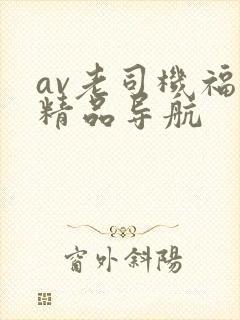 av老司機福
精品导航
窗外斜陽